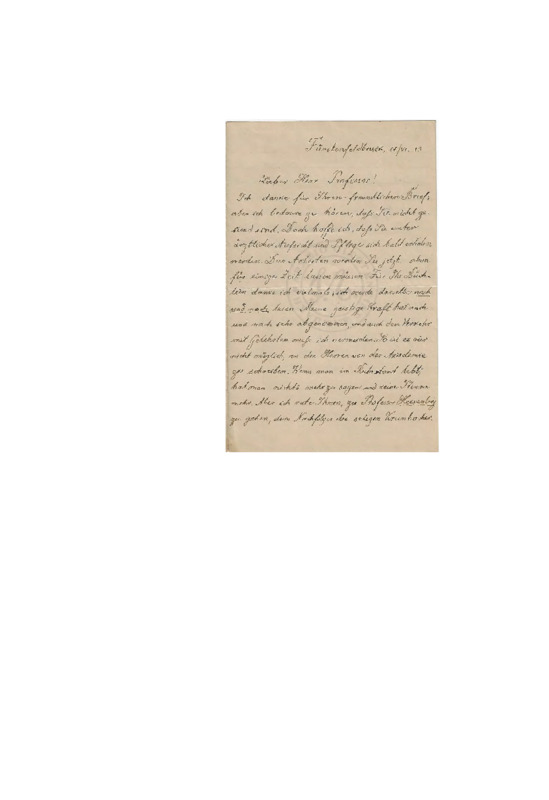 Fürstenfeldbruck, 18/VI. 13
Lieber Herr Professor!
Ich danke für Ihren freundlichen Brief,
aber ich bedaure zu hören, daß Sie nicht ge-
sund sind. Doch hoffe ich, daß Sie unter
ärztlicher Aufsicht und Pflege sich bald erholen
werden. Das Arbeiten werden Sie jetzt eben
für einige Zeit lassen müssen. Für Ihr Büch-
lein danke ich vielmals, ich werde dasselbe nach
und nach lesen. Meine geistige Kraft hat nach
und nach sehr abgenommen, und auch den Verkehr
mit Gelehrten muß ich vermeiden. So ist es mir
nicht möglich, an die Herren von der Academie
zu schreiben. Wenn man im Ruhestand lebt,
hat man nichts mehr zu sagen und keine Stimme
mehr. Aber ich rate Ihnen, zu Professor Heisenberg
zu gehen, dem Nachfolger des seligen Krumbacher.